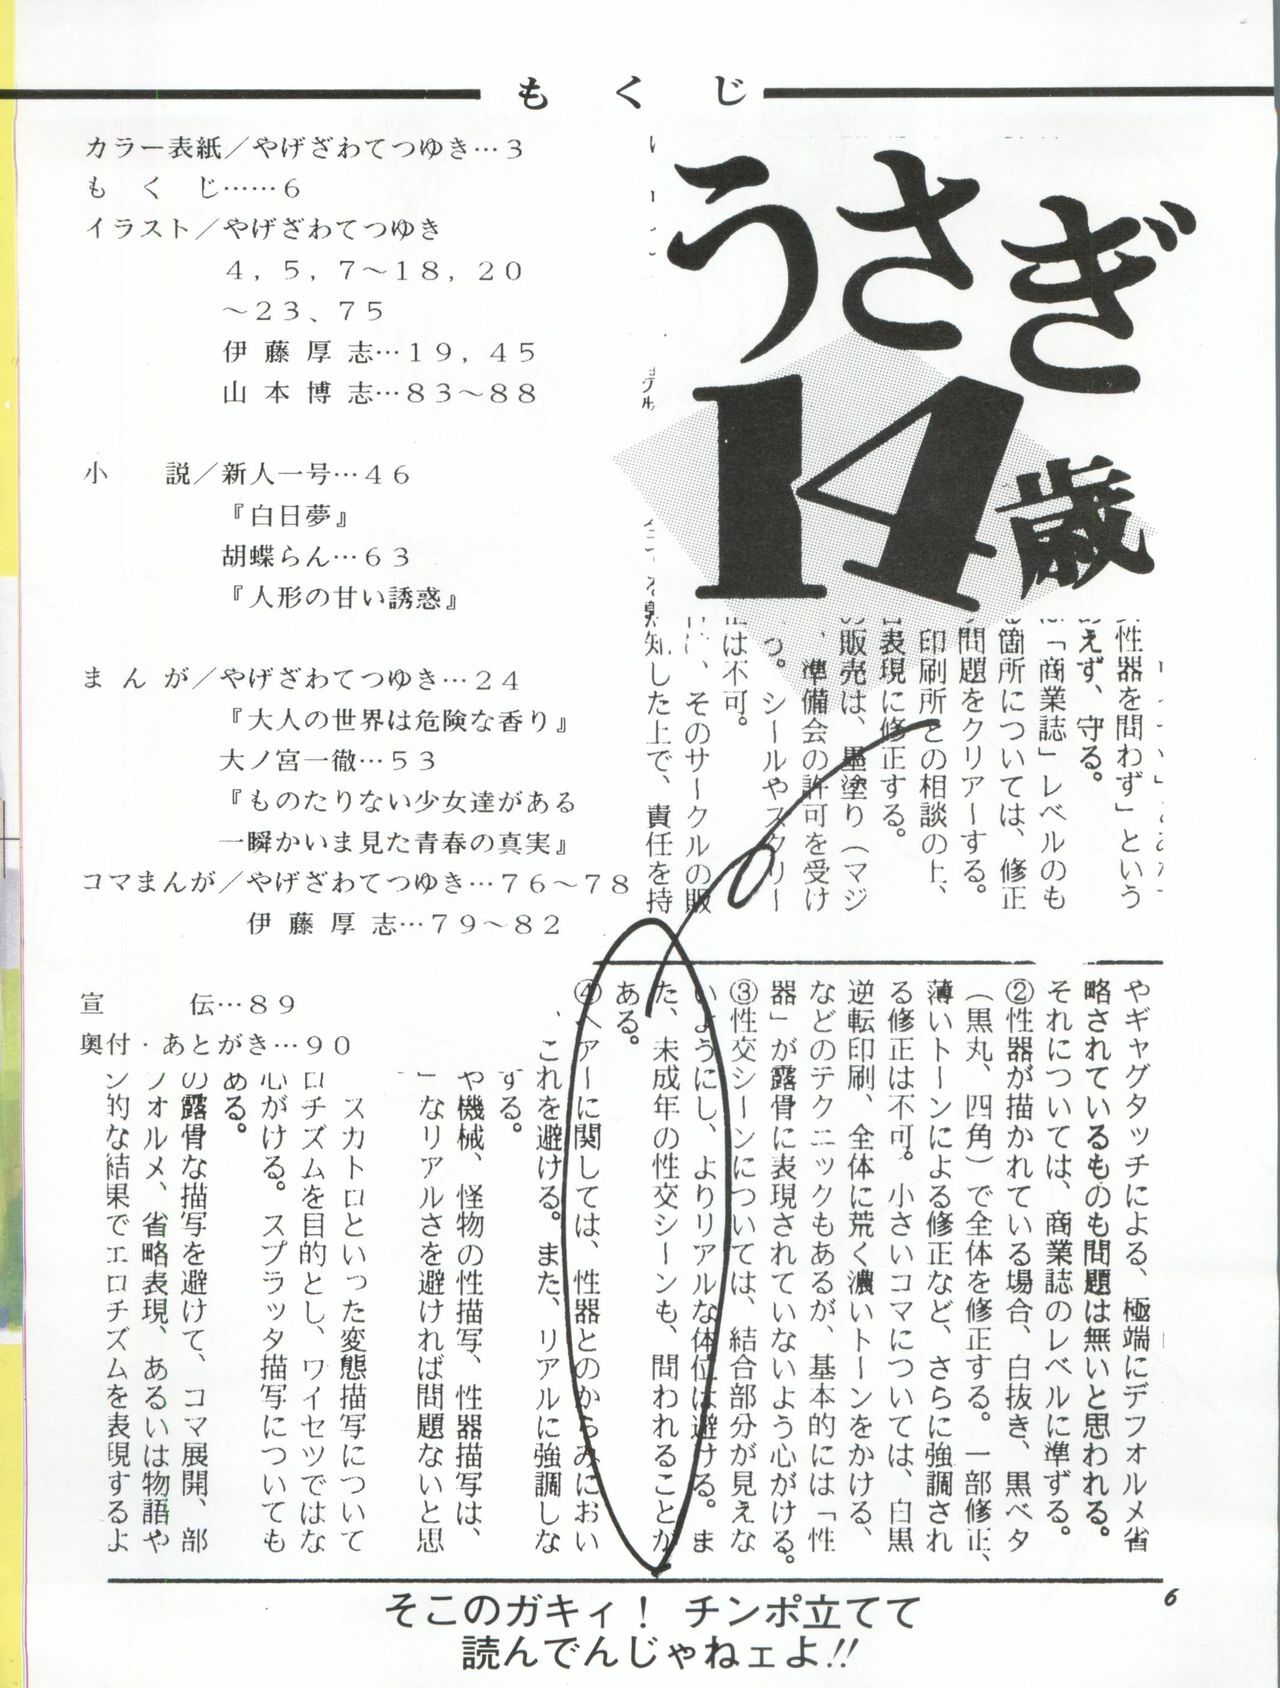 もくじ
カラー表紙／やげざわてつゆき…3
もくじ……6
イラスト／やげざわてつゆき
4，5，7～18，20
～23、75
伊藤厚志…19，45
山本博志…83～88
小説／新人一号…46
『白日夢』
胡蝶らん…63
『人形の甘い誘惑』
まんが／やげざわてつゆき…24
『大人の世界は危険な香り』
大ノ宮一徹…53
『ものたりない少女達がある
一瞬かいま見た青春の真実』
コマまんが／やげざわてつゆき…76～78
伊藤厚志…79～82
宣伝…89
奥付・あとがき…90
うさぎ
14歳
性器を問わず」という
えず、守る。
「商業誌」レベルのも
箇所については、修正
問題をクリアーする。
印刷所との相談の上、
表現に修正する。
販売は、墨塗り（マジ
、準備会の許可を受け
。シールやスクリー
は不可。
、そのサークルの販
知した上で、責任を持
やギャグタッチによる、極端にデフォルメ省
略されているものも問題は無いと思われる。
それについては、商業誌のレベルに準ずる。
②性器が描かれている場合、白抜き、黒ベタ
（黒丸、四角）で全体を修正する。一部修正、
薄いトーンによる修正など、さらに強調され
る修正は不可。小さいコマについては、白黒
逆転印刷、全体に荒く濃いトーンをかける、
などのテクニックもあるが、基本的には「性
器」が露骨に表現されていないよう心がける。
③性交シーンについては、結合部分が見えな
いようにし、よりリアルな体位は避ける。ま
た、未成年の性交シーンも、問われることが
ある。
④ヘアーに関しては、性器とのからみにおい
、これを避ける。また、リアルに強調しな
する。
や機械、怪物の性描写、性器描写は、
」なリアルさを避ければ問題ないと思
スカトロといった変態描写について
ロチズムを目的とし、ワイセツではな
心がける。スプラッタ描写についても
める。
の露骨な描写を避けて、コマ展開、部
フォルメ、省略表現、あるいは物語や
ン的な結果でエロチズムを表現するよ
6
そこのガキィ！ チンポ立てて
読んでんじゃねェよ!!